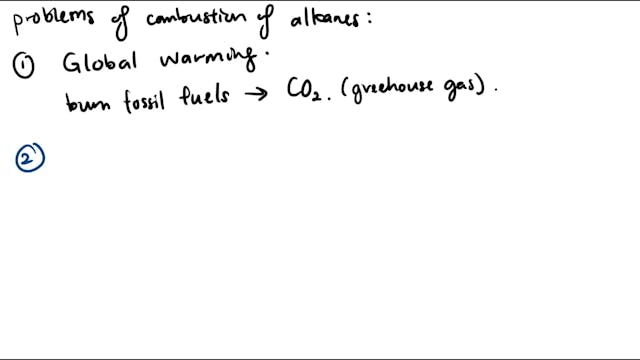 problems of combustion of alkanes:
① Global warming.
burn fossil fuels → CO₂. (greenhouse gas).
②